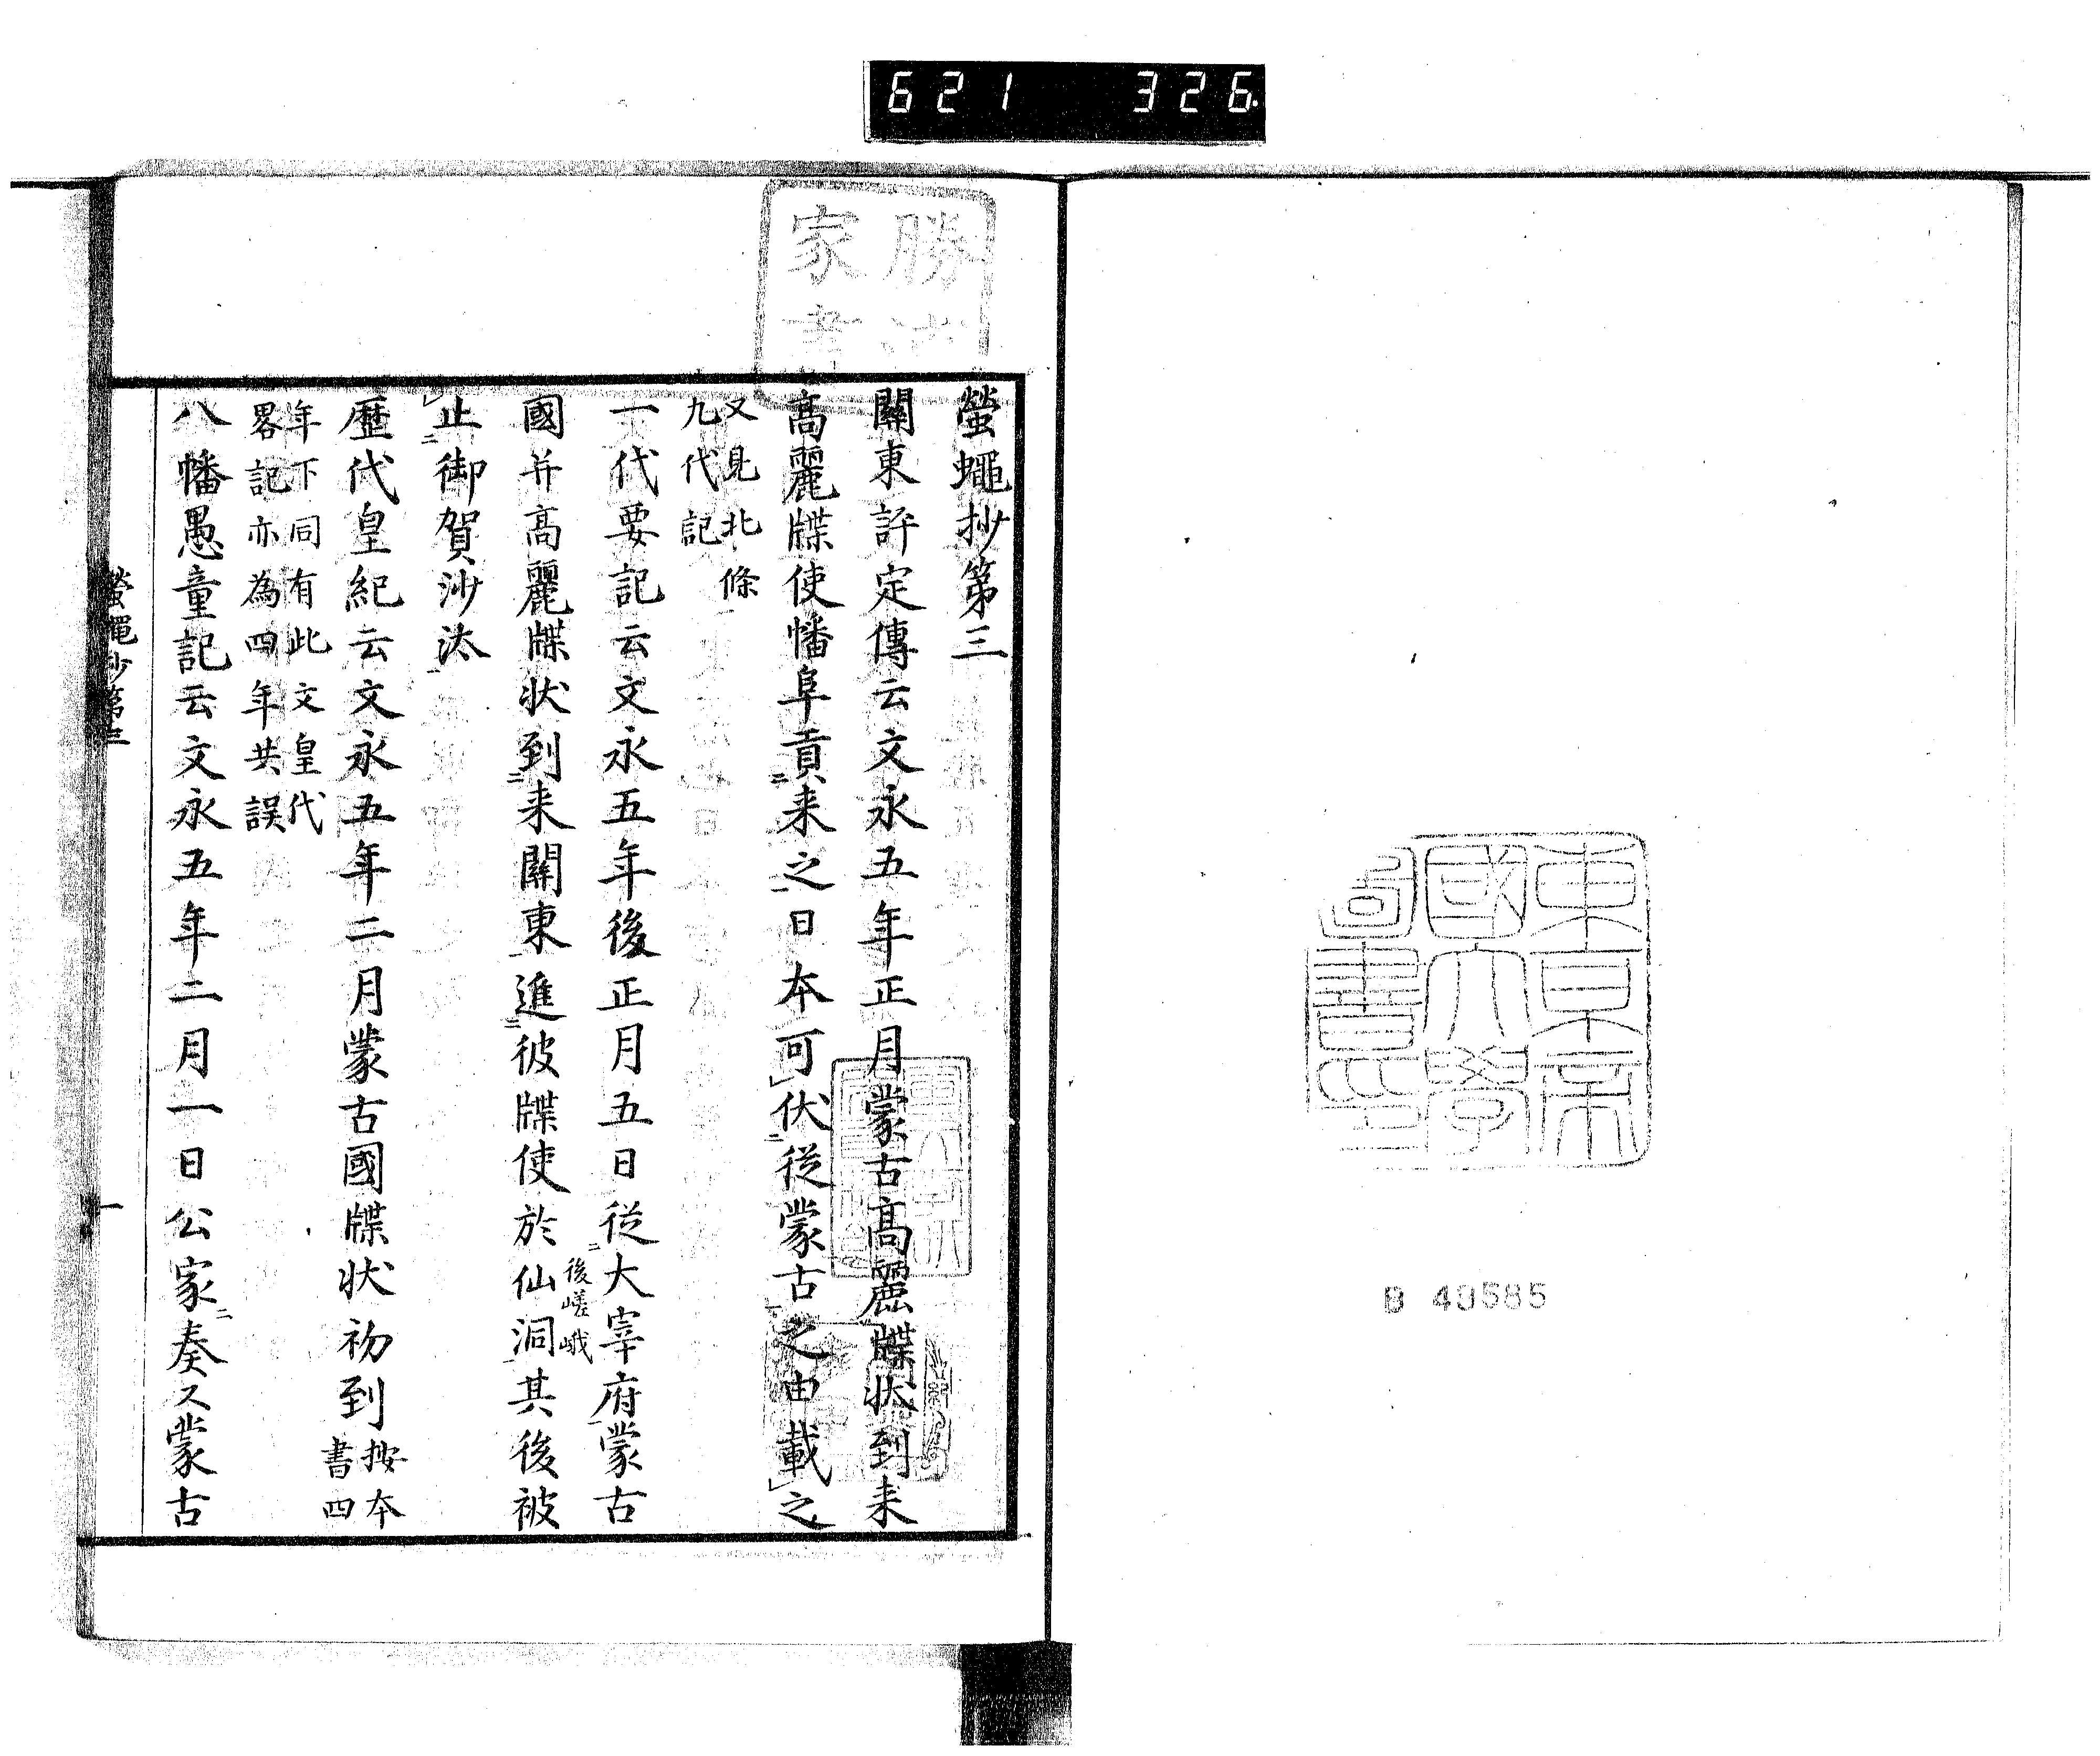 621 326
東京帝
國大學
圖書印
B 40585
勝
家
螢蠅抄第三
關東評定傳云文永五年正月蒙古高麗牒状到来
高麗牒使幡阜貢来之日本可伏従蒙古之由載之
又見北條
九代記
一代要記云文永五年後正月五日従大宰府蒙古
國并高麗牒状到来關東進彼牒使於仙洞其後被
後嵯峨
止御賀沙汰
歴代皇紀云文永五年二月蒙古國牒状初到按本
書四
年下同有此文皇代
畧記亦為四年共誤
八幡愚童記云文永五年二月一日公家奏又蒙古
螢蠅抄第三
一